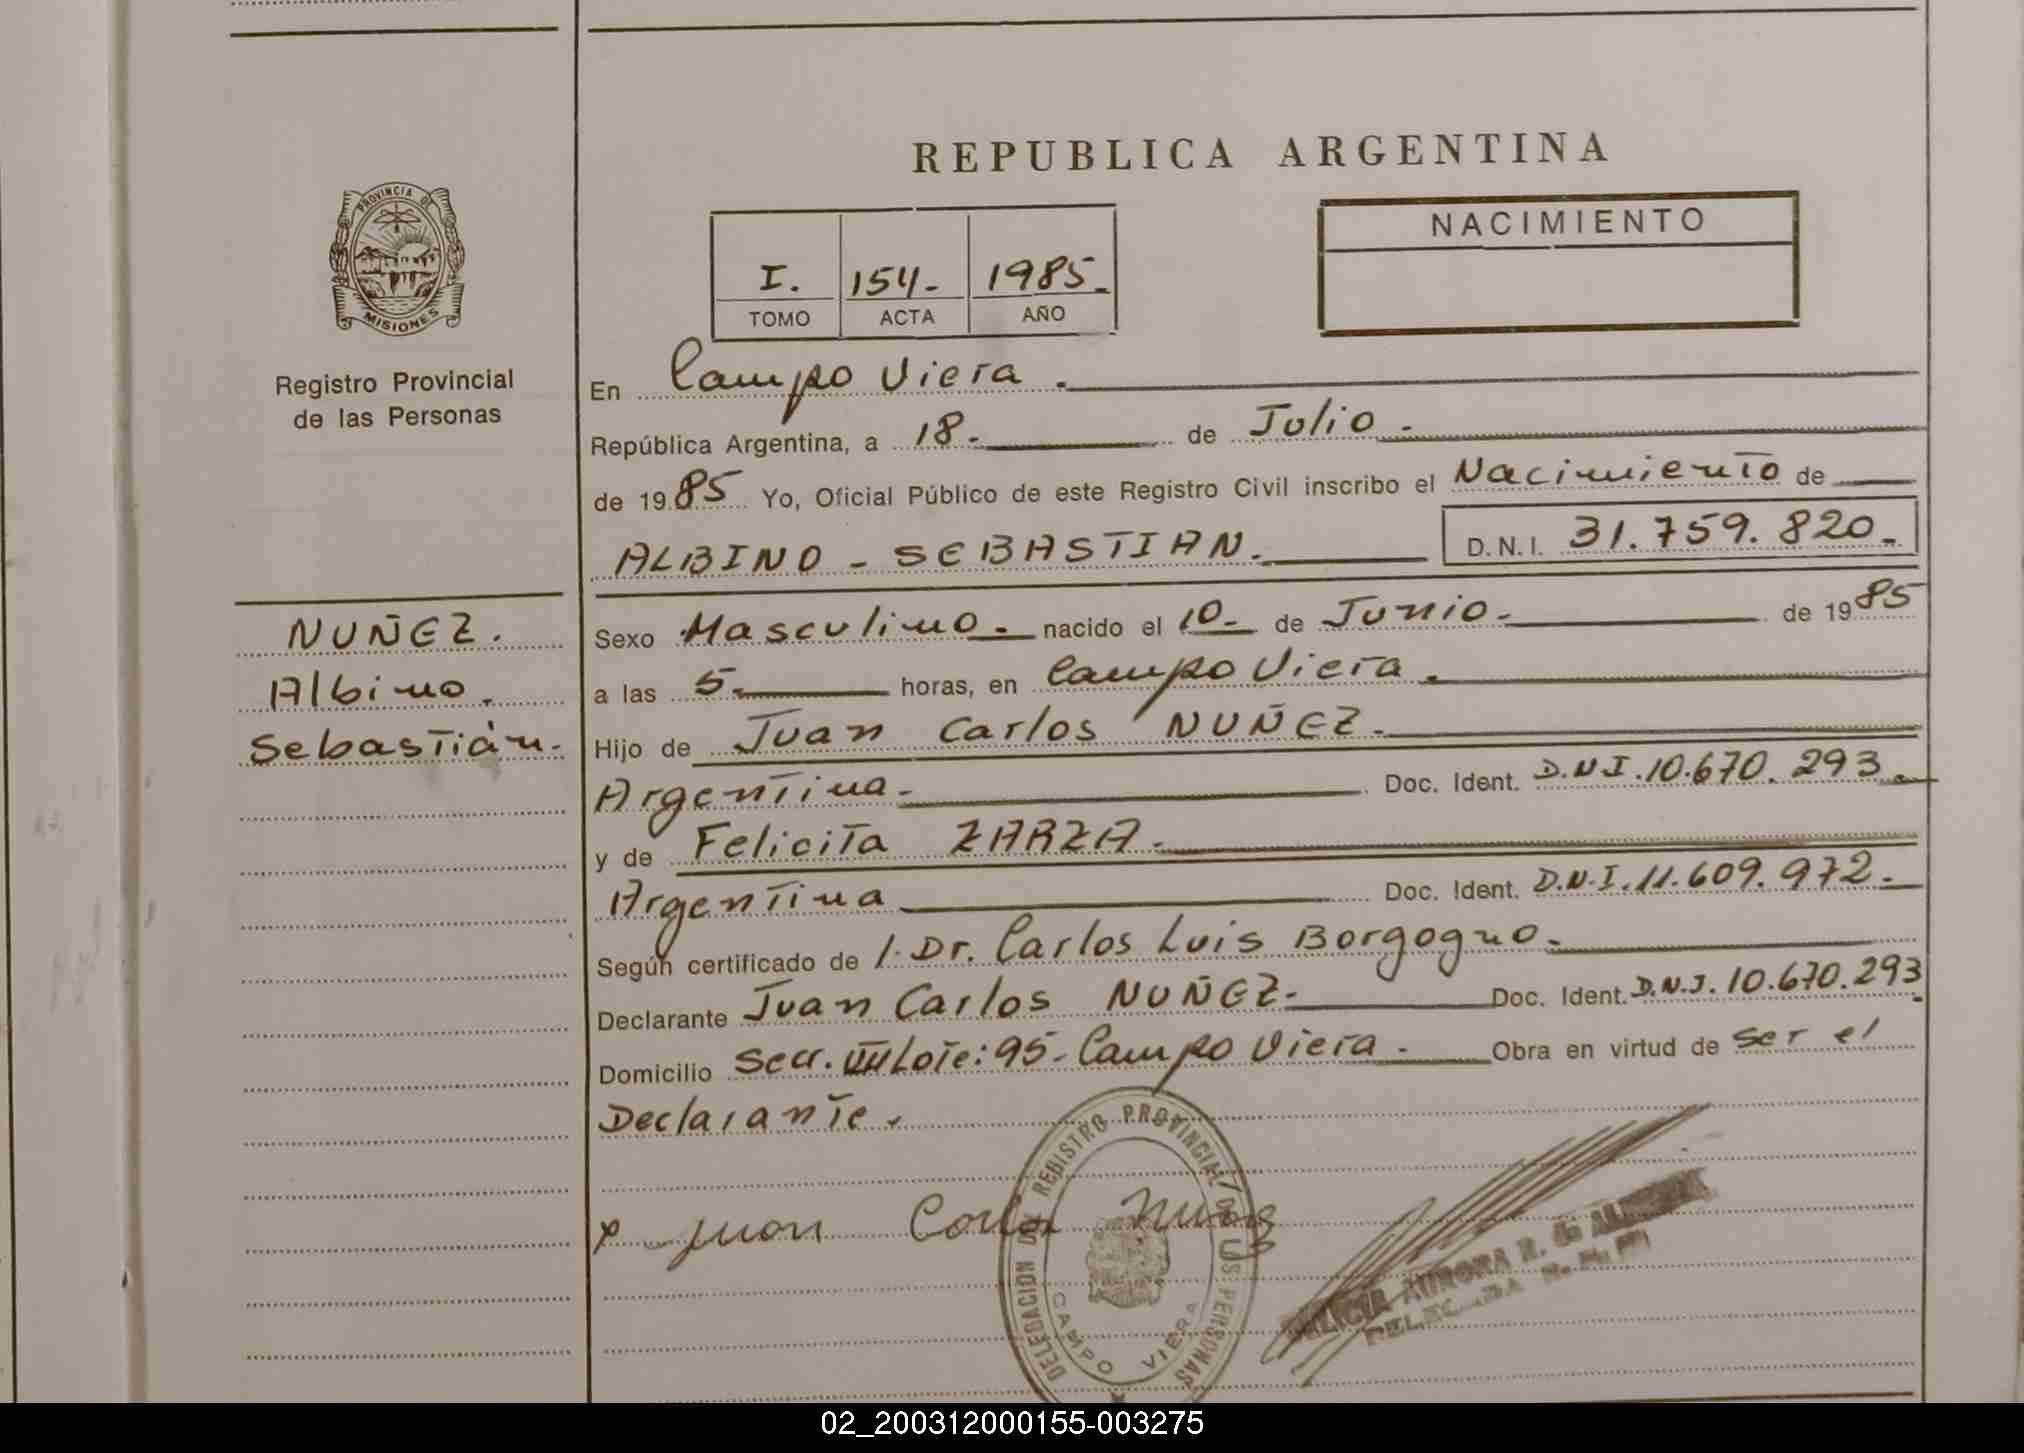 REPUBLICA ARGENTINA
PROVINCIA DE
MISIONES
Registro Provincial
de las Personas
I. 154- 1985-
TOMO ACTA AÑO
NACIMIENTO
En Campo Viera.
República Argentina, a 18- de Julio.-
de 1985 Yo, Oficial Público de este Registro Civil inscribo el Nacimiento de
ALBINO - SEBASTIAN. D.N.I. 31.759.820-
NUÑEZ.
Albino.
Sebastián.-
Sexo Masculino. nacido el 10- de Junio.- de 1985
a las 5- horas, en Campo Viera.
Hijo de Juan Carlos NUÑEZ.-
Argentina.- Doc. Ident. D.N.I. 10.670.293.-
y de Felicita ZARZA.-
Argentina Doc. Ident. D.N.I. 11.609.972.-
Según certificado de l. Dr. Carlos Luis Borgogno.-
Declarante Juan Carlos NUÑEZ- Doc. Ident. D.N.I. 10.670.293
Domicilio Secc. VIII Lote: 95- Campo Viera.- Obra en virtud de ser el
Declarante.
x Juan Carlos Nuñez
DELEGACION DEL REGISTRO PROVINCIAL DE LAS PERSONAS
CAMPO VIERA
AURORA R. de
DELEGADA
02_200312000155-003275